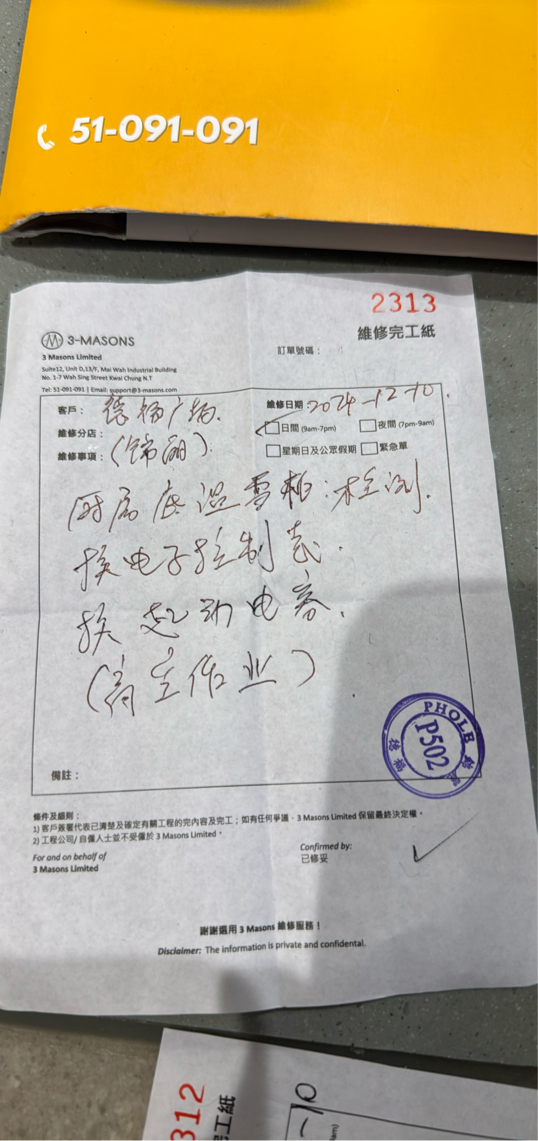 51-091-091
2313
維修完工紙
3-MASONS
訂單號碼：
3 Masons Limited
Suite12, Unit D,13/F, Mai Wah Industrial Building
No. 1-7 Wah Sing Street Kwai Chung N.T
Tel: 51-091-091 | Email: support@3-masons.com
客戶： 德福广场.
維修日期: 2024-12-10.
維修分店：
日間 (9am-7pm) 夜間 (7pm-9am)
維修事項：
星期日及公眾假期 緊急單
厨房底温雪柜:检测.
换电子控制
换起动电容.
(高空作业)
PHOLE
P502
備註：
條件及細則：
1) 客戶簽署代表已清楚及確定有關工程的完內容及完工；如有任何爭議，3 Masons Limited 保留最終決定權。
2) 工程公司/ 自僱人士並不受僱於 3 Masons Limited。
For and on behalf of
3 Masons Limited
Confirmed by:
已修妥
謝謝選用 3 Masons 維修服務！
Disclaimer: The information is private and confidental.
312
完工紙
-10